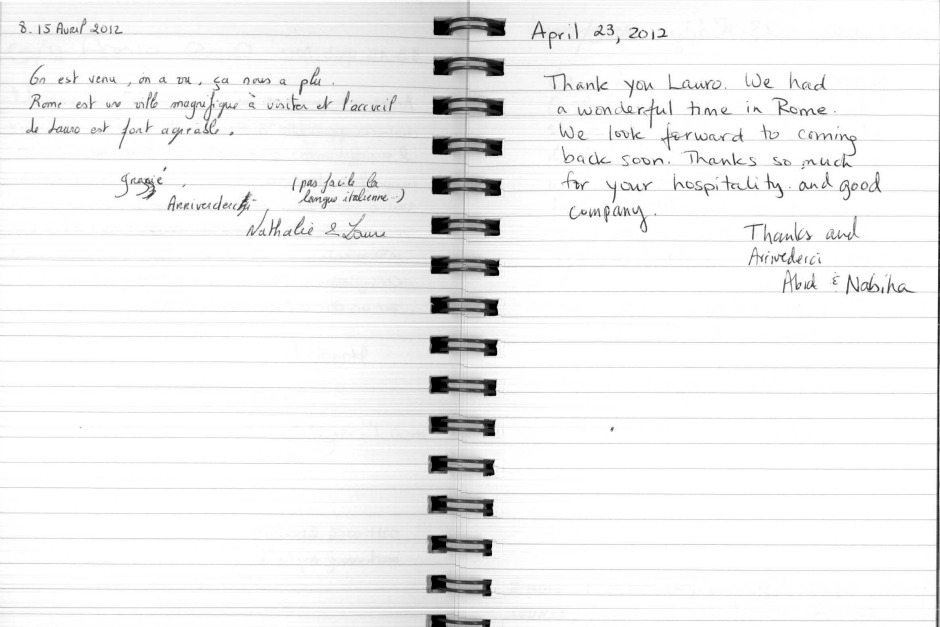 8. 15 Avril 2012
On est venu, on a vu, ça nous a plu.
Rome est une ville magnifique à visiter et l'accueil
de Lauro est fort agréable.
grazié,
Arriverderchi
(pas facile la
langue italienne..)
Nathalie & Laure
April 23, 2012
Thank you Lauro. We had
a wonderful time in Rome.
We look forward to coming
back soon. Thanks so much
for your hospitality. and good
company.
Thanks and
Arivederci
Abid & Nabiha